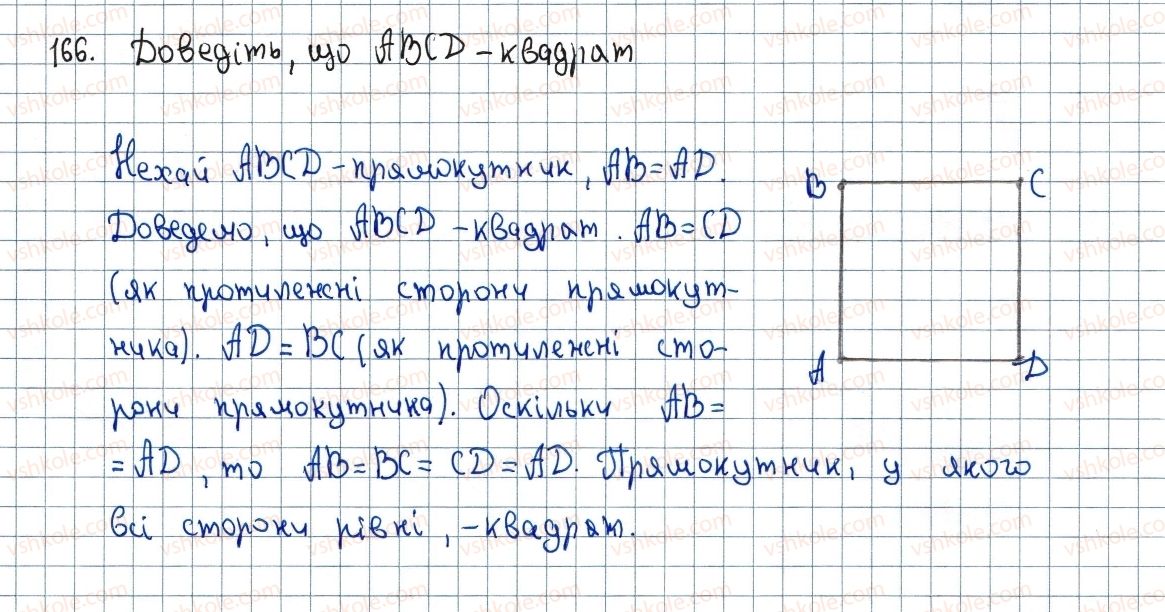 166. Доведіть, що ABCD – квадрат
Нехай ABCD – прямокутник, AB = AD.
Доведемо, що ABCD – квадрат. AB = CD
(як протилежні сторони прямокут-
ника). AD = BC (як протилежні сто-
рони прямокутника). Оскільки AB =
= AD, то AB = BC = CD = AD. Прямокутник, у якого
всі сторони рівні, – квадрат.
B
C
A
D
vshkole.com